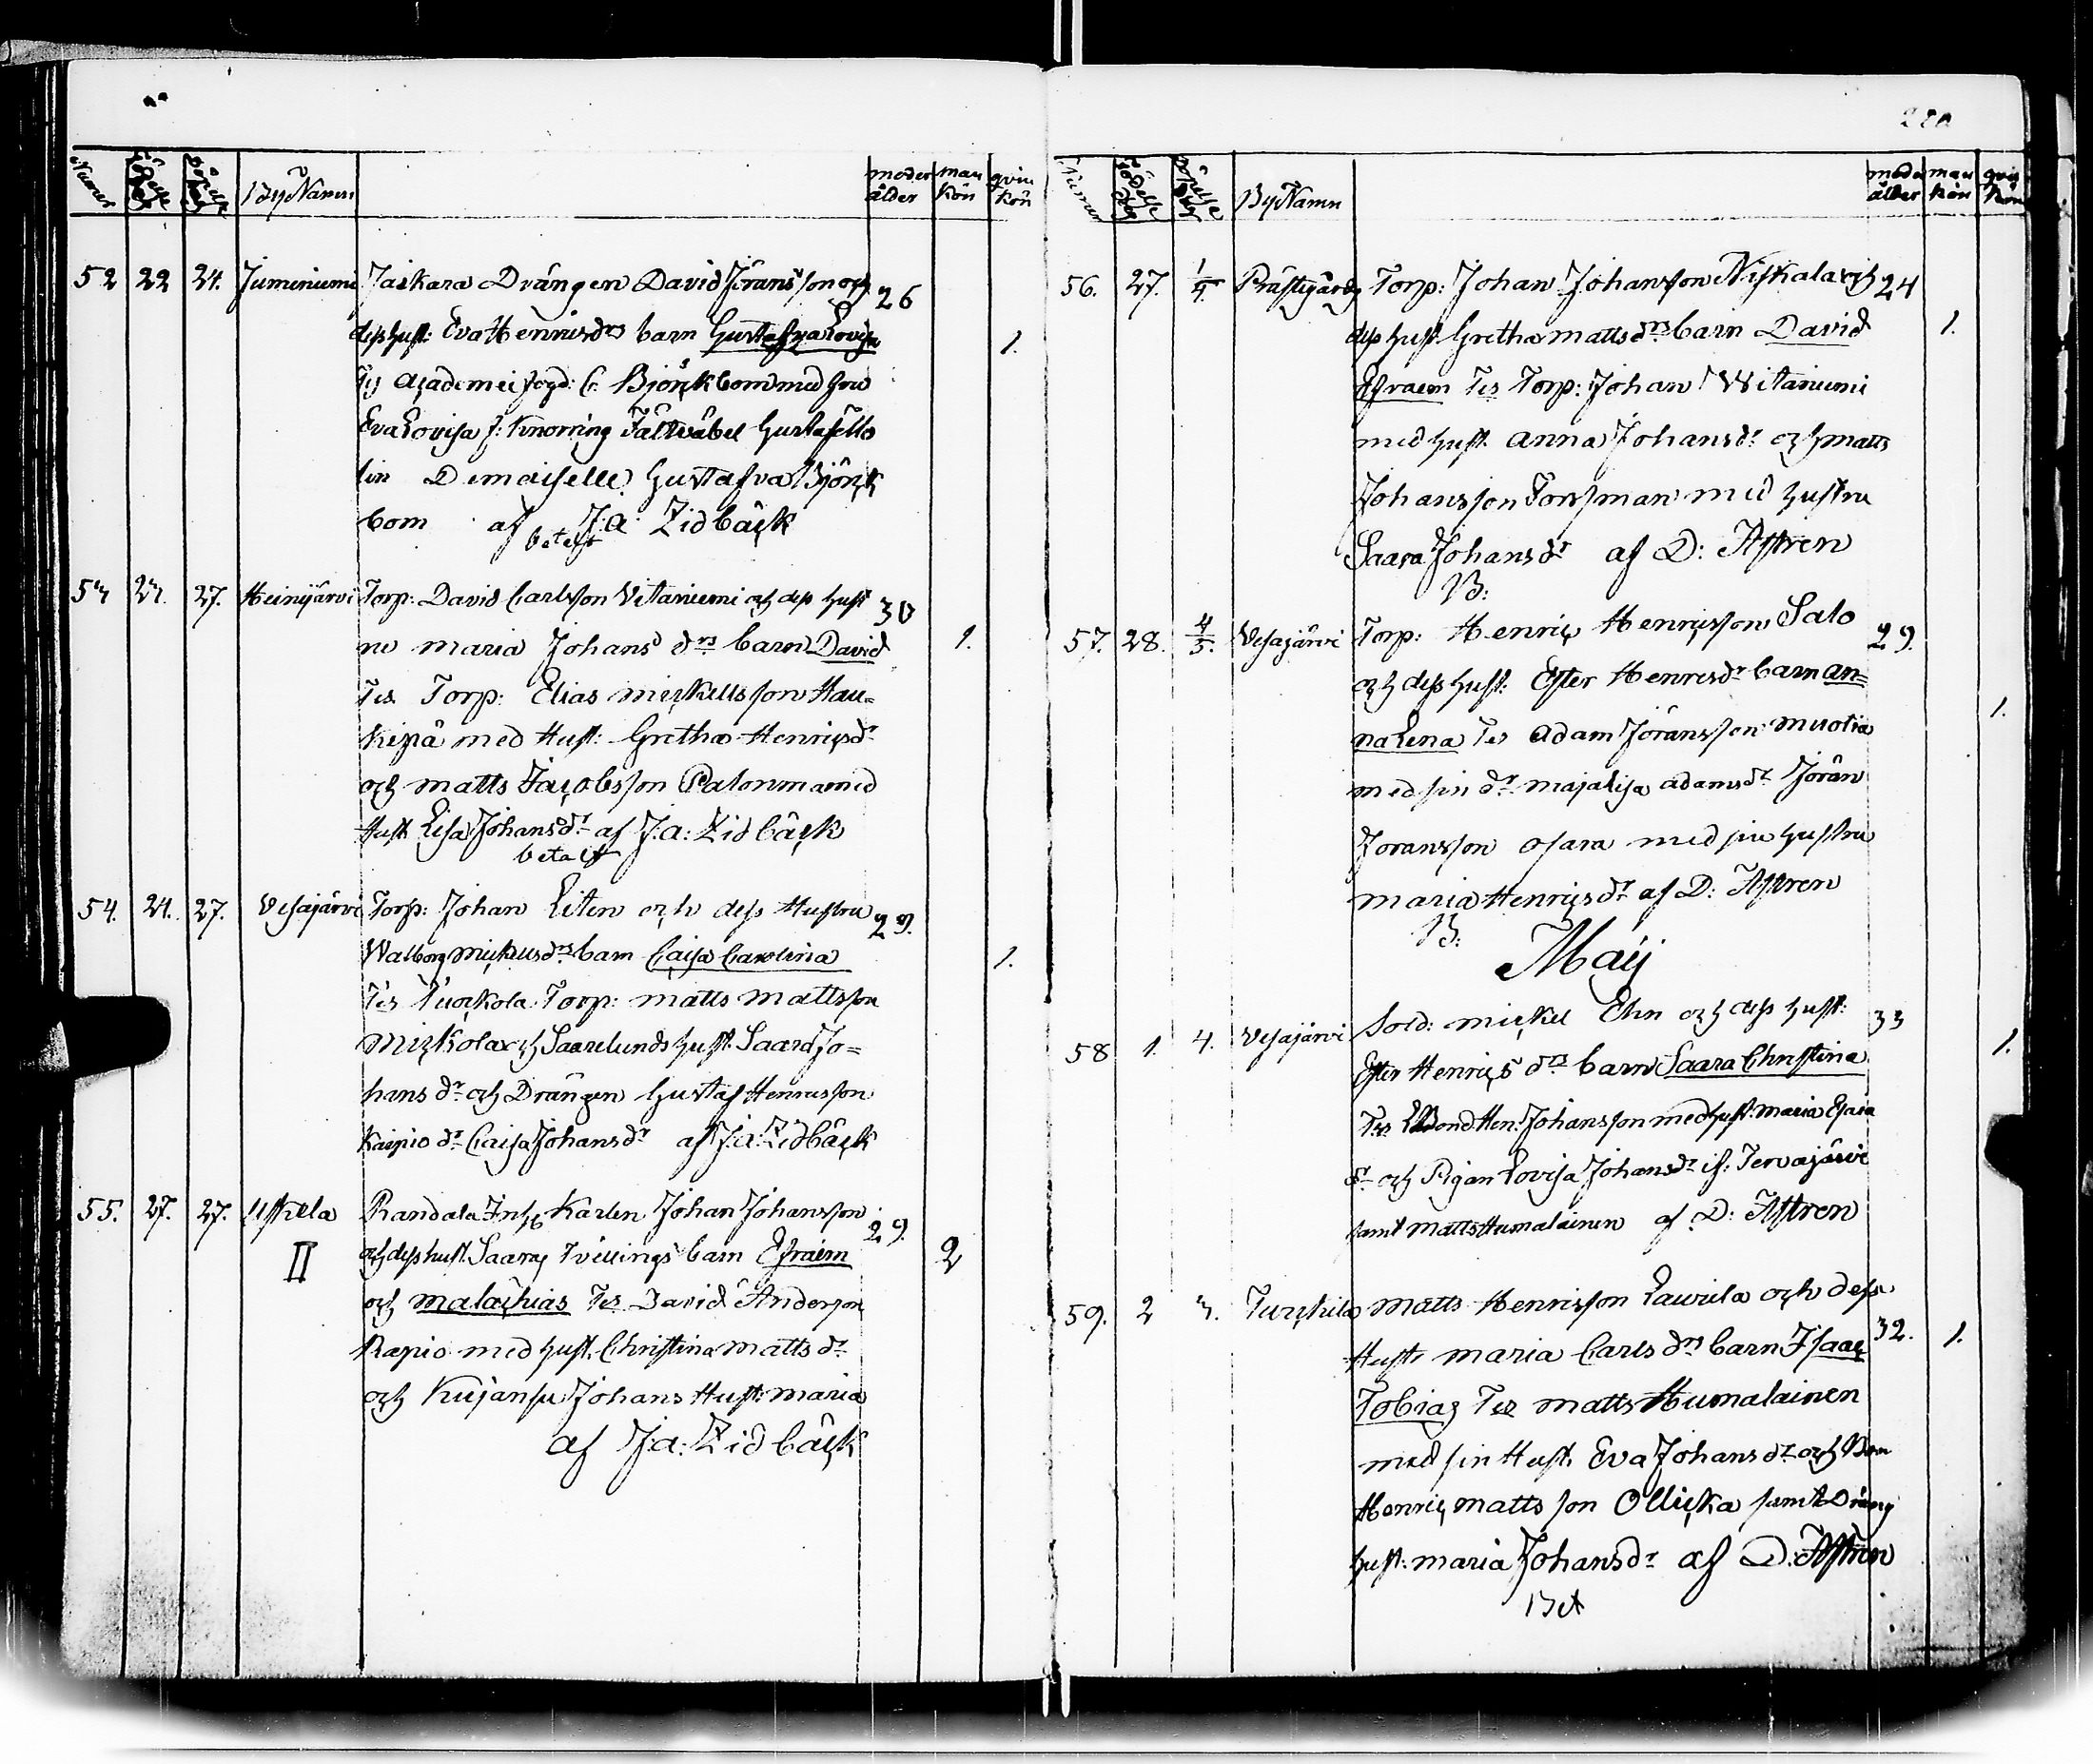 Numer Födelse dag Döpelse dag By Namn moder ålder man kön qvin kön
52 22 24. Juminiemi Jaskara Drängen David Jöransson och 26
dess hust: Eva Henricsdrs barn Gustafva Lovisa 1.
Tes academiefogd: C. Björckbom med fru
Eva Lovisa f: Knorring Fältväbel Gustaf
lin Demoiselle Gustafva Björck
bom af J:a: Lidbäck
betalt
53 24. 27. Heinijärvi Torp: David Carlsson Vitaniemi och dess hust 30
ru maria Johans drs barn David 1.
Tes Torp: Elias mickellsson Hau=
kipä med Hust: Gretha Henricsdr
och matts Jacobsson Palonma med
Hust Lisa Johansdr af J:a: Lidbäck
betalt
54. 24. 27. Vesajärvi Torp: Johan Liten och dess Hustru 29.
Walborg mickelsdrs barn Caisa Carolina 1.
Tes Turckola Torp: matts mattsson
Mickola och Saarelunds hust. Saara Jo=
hans dr och Drängen Gustaf Henricsson
Kaipio dr Caisa Johansdr af J:a: Lidbäck
55. 27. 27. Uskela Randala Inh: Karlen Johan Johansson 29.
II och dess hust. Saaras Tvillings barn Efraim 2
och malachias Tes David Andersson
Rapio med hust. Christina matts dr
och Kujansu Johans Hust: maria
af J:a: Lidbäck
220
Numer Födelse dag Döpelse dag By Namn moder ålder man kön qvin kön
56. 27. 1/4. Prästgård Torp: Johan Johansson Niskala och 24
dess hust Gretha matts drs barn David 1.
Efraem Tes Torp: Johan Witaniemi
med hust. anna Johansdr och matts
Johansson Forssman med hustru
Saara Johansdr af D: Astren
B:
57. 28. 4/5. Vesajärvi Torp: Henric Henricsson Salo 29.
och dess hust: Ester Henricsdrs barn an=
na Lena Tes adam Jöransson muotia 1.
med sin dr. maja lisa adamsdr Jöran
Joransson osara med sin hustru
maria Henricsdr af D: Astren
B:
Maij
58 1. 4. Vesajärvi Sold: mickel Ehn och dess hust: 33
Ester Henrics drs barn Saara Christina 1.
Tes Bond. Hen: Johansson med hust: maria Esaia
dr och Pigan Lovisa Johansdr if: Tervajärvi
samt matts Humalainen af D: Astren
59. 2 3. Turckila matts Henricsson Laurila och dess
Hust: maria Carls drs barn Isaac 32. 1.
Tobias Tes matts Humalainen
med sin Hust. Eva Johans dr och Bon
Henric matts son Ollicka samt Dräng
hust: maria Johansdr af D: Astren
Bet